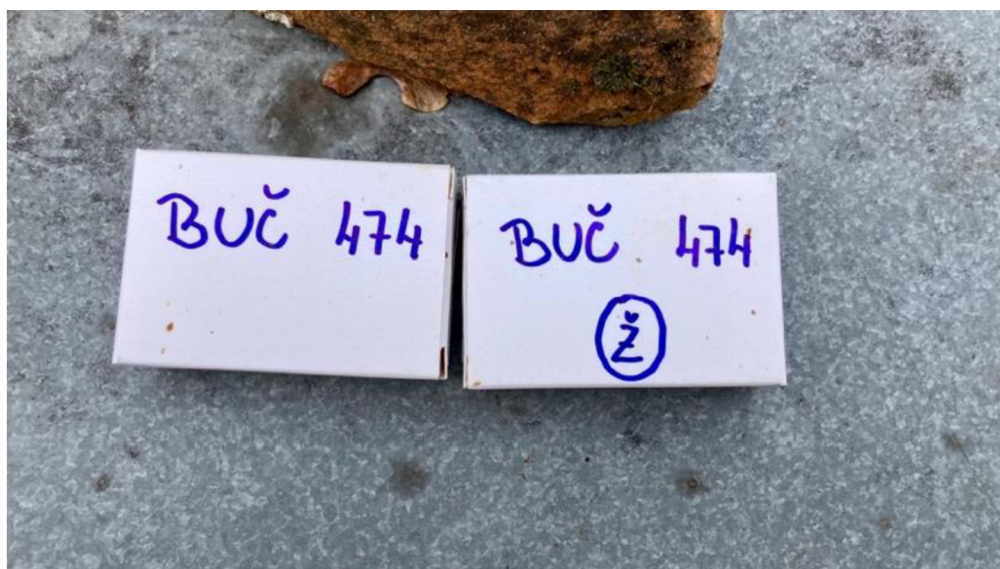 BUČ 474
BUČ 474
Ž